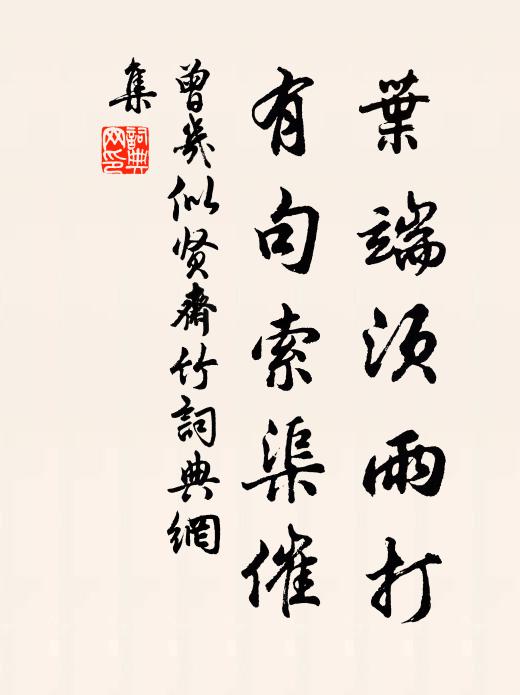 葉端須雨打
有句索渠催
曾幾似賢齋竹詞典網
集
詞典網印